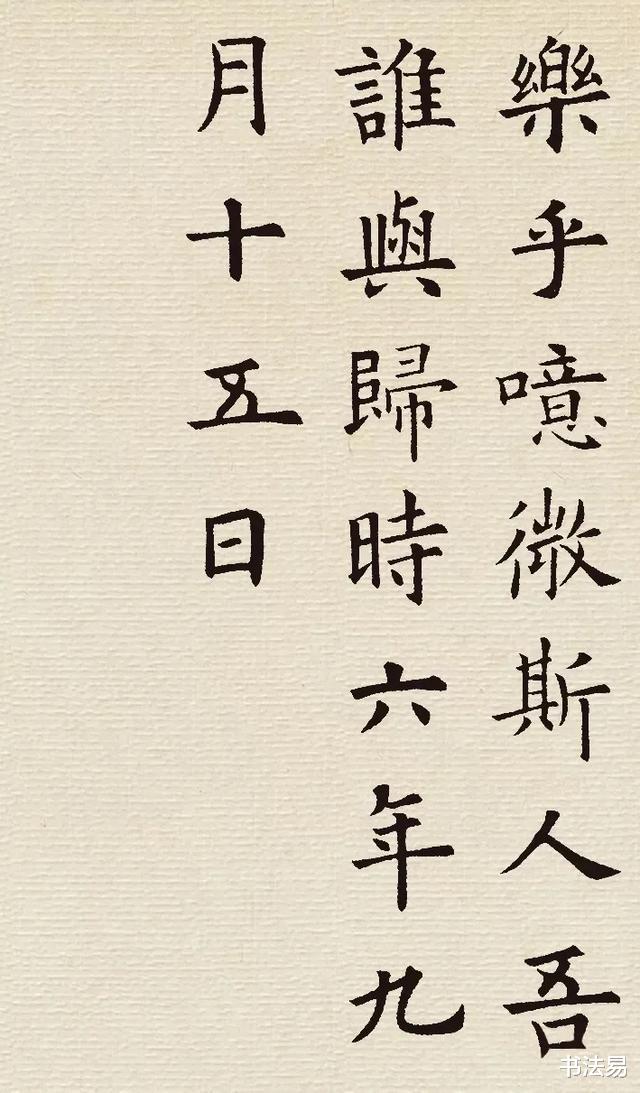 樂乎噫微斯人吾
誰與歸時六年九
月十五日
书法易